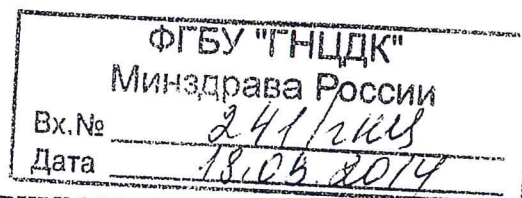 ФГБУ "ГНЦДК"
Минздрава России
Вх.№ 241/гнц
Дата 13.05.2014